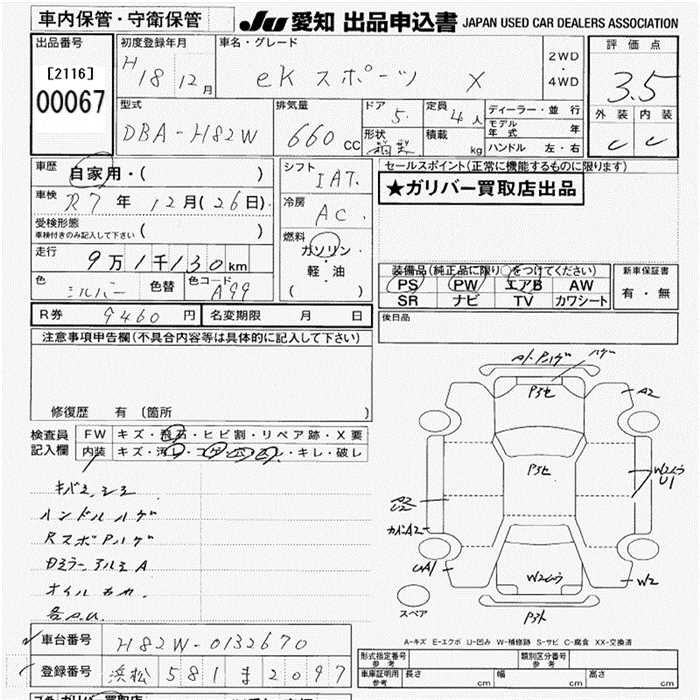 車内保管・守衛保管
JU 愛知 出品申込書 JAPAN USED CAR DEALERS ASSOCIATION
出品番号
[2116]
00067
初度登録年月
H18 12月
車名・グレード
eKスポーツ X
2WD
・
4WD
評価点
3.5
外装 内装
C C
型式
DBA-H82W
排気量
660cc
ドア 5.
形状
定員 4人
積載 kg
ディーラー・並行
モデル年式 年
ハンドル 左・右
車歴 自家用・( )
車検 R7年 12月(26日)
受検形態
車検付きのみ記入して下さい ( )
走行 9万1千130km
色 シルバー 色替 色コード A99
シフト IAT.
冷房 AC.
燃料
ガソリン・
軽・油
( )
セールスポイント(正常に機能するものに限ります)
★ガリバー買取店出品
装備品(純正品に限り○をつけてください)
PS PW エアB AW
SR ナビ TV カワシート
新車保証書
有・無
R券 9460円 名変期限 月 日
後日品
注意事項申告欄(不具合内容等は具体的に記入して下さい)
修復歴 有〔箇所 〕
検査員記入欄
FW キズ・飛石・ヒビ割・リペア跡・X要
内装 キズ・汚れ・コゲ・穴・ ・キレ・破レ
ハンドルハゲ
RスポPハゲ
Dミラー アルミA
各P.U.
ハゲ
Pスセ
A2
Pスセ
U1
カインA2
UA1
W2
スペア
A-キズ E-エクボ U-凹み W-補修跡 S-サビ C-腐食 XX-交換済
車台番号 H82W-0132670
登録番号 浜松 581 ま 2097
形式指定番号 参考
類別区分番号 参考
車庫証明用 参考 長さ cm 幅 cm 高さ cm
ガリバー 買取店